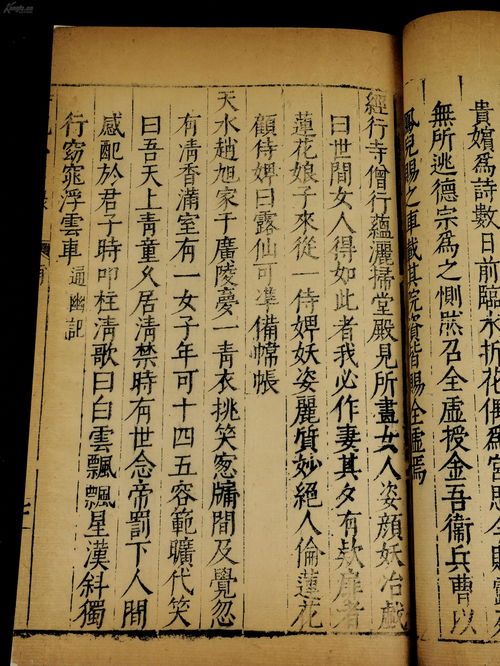 貴嬪爲詩數日前臨水折花偶爲宮思今
無所逃德宗爲之惻然召全虛授金吾衞兵曹以
鳳兒賜之車載其院資皆賜全虛焉
經行寺僧行蘊灑掃堂殿見所畫女人姿顏妖冶戲
曰世間女人得如此者我必作妻其夕有款扉者
蓮花娘子來從一侍婢妖姿麗質妙絕人倫蓮花
顧侍婢曰露仙可準備幃帳
天水趙旭家于廣陵夢一青衣挑笑窓牖間及覺忽
有清香滿室有一女子年可十四五容範曠代笑
曰吾天上青童久居清禁時有世念帝罰下人間
感配於君子時叩柱清歌曰白雲飄飄星漢斜獨
行窈窕浮雲車 通幽記
七
Kongfz.cn